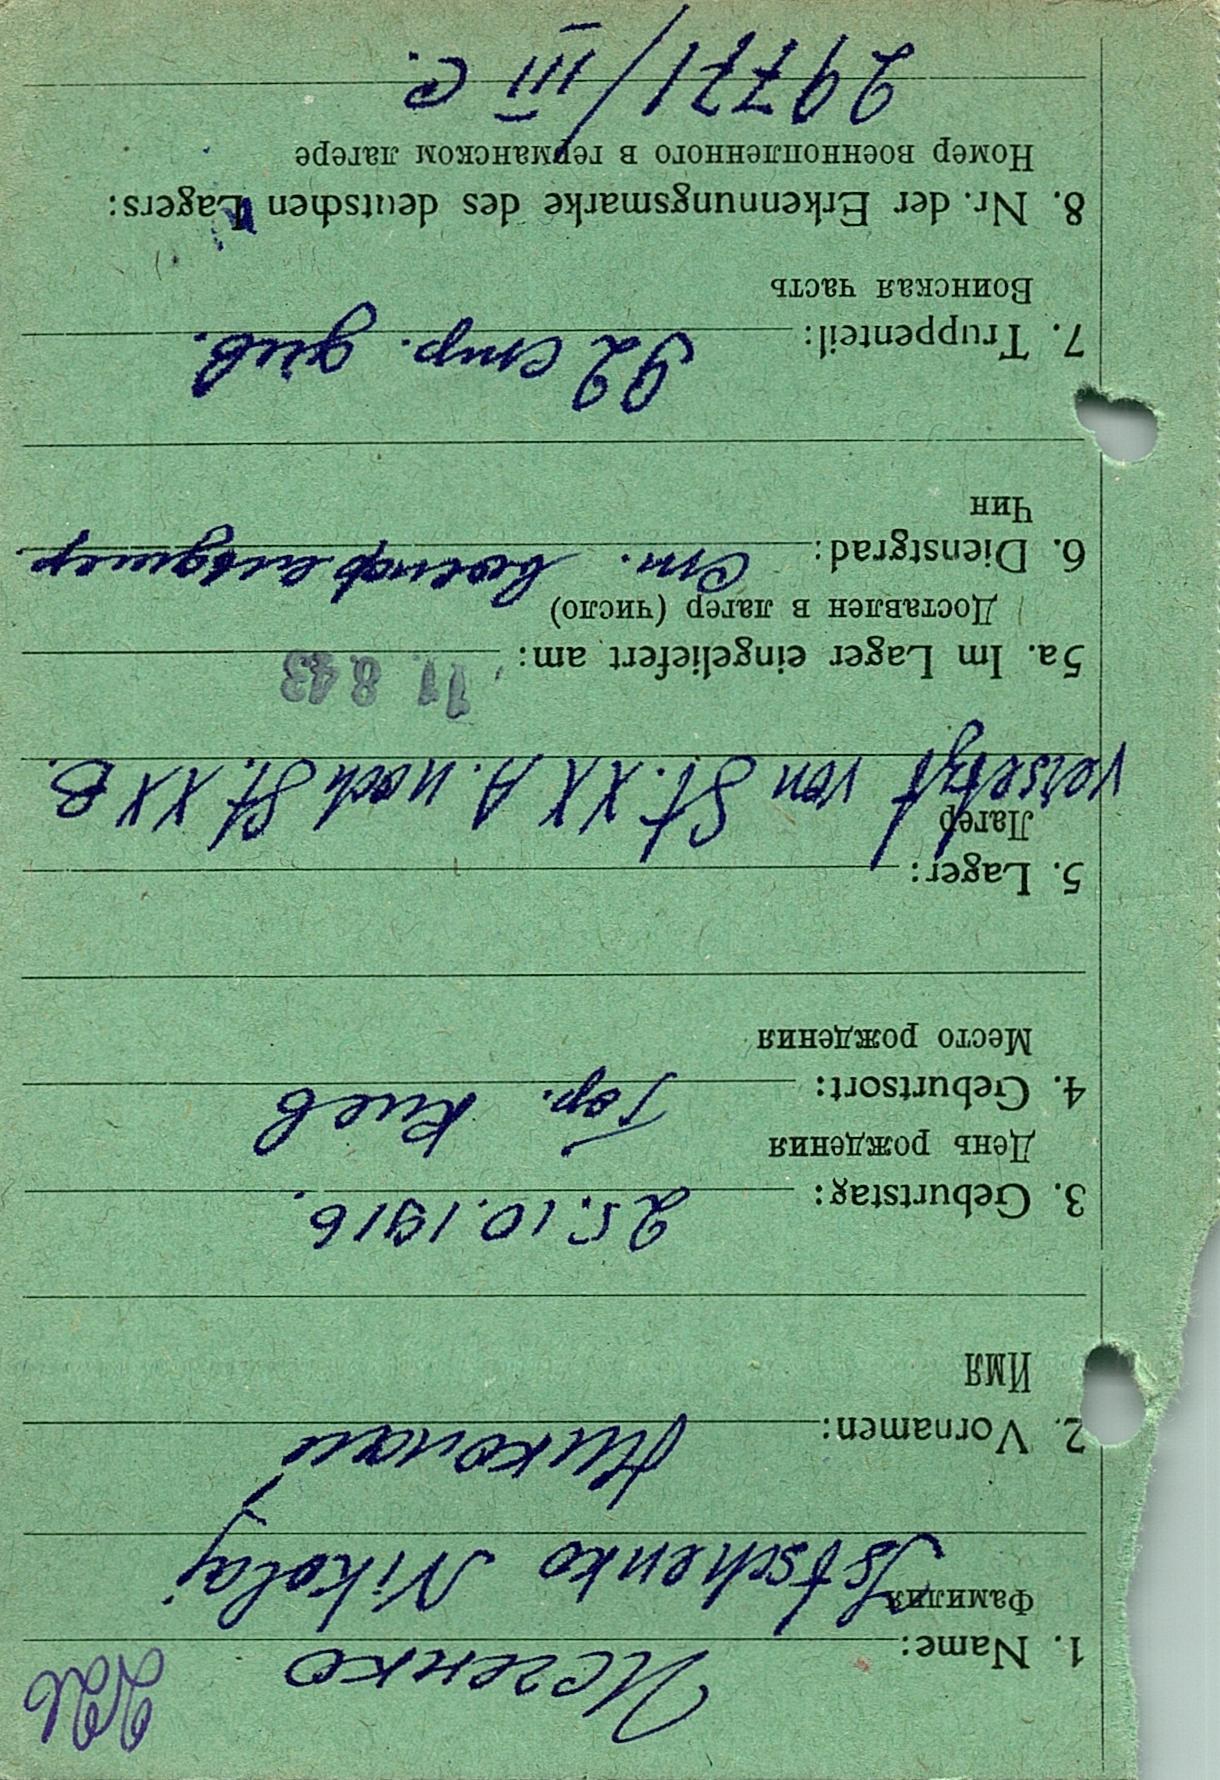 226
1. Name: Исченко
Фамилия
Istschenko Nikolaj
2. Vornamen: Николай
Имя
3. Geburtstag: 25.10.1916.
День рождения
4. Geburtsort: Гор. Киев
Место рождения
5. Lager:
Лагер
versetzt von St. XX A. nach St. XX B.
5a. Im Lager eingeliefert am: 11. 8. 43
Доставлен в лагер (число)
6. Dienstgrad: Ст. военфельдшер
Чин
7. Truppenteil: 92 стр. див.
Воинская часть
8. Nr. der Erkennungsmarke des deutschen Lagers:
Номер военнопленного в германском лагере
29771/III C.